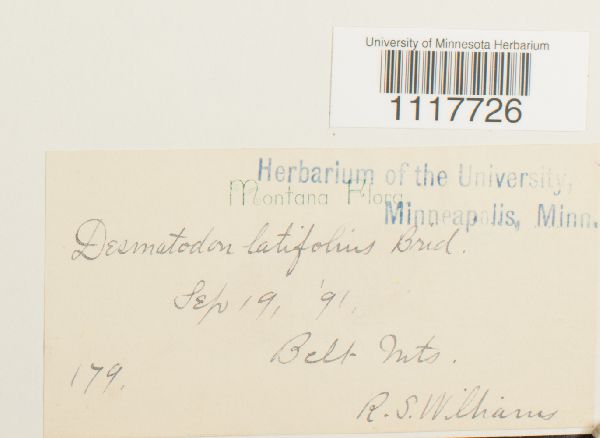 University of Minnesota Herbarium
1117726
Herbarium of the University,
Montana Flora
Minneapolis, Minn.
Desmatodon latifolius Brid.
Sep 19, '91.
Belt Mts.
179.
R. S. Williams